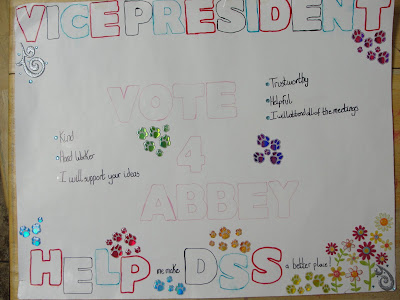 VICEPRESIDENT
VOTE
4
ABBEY
Kind
Hard Worker
I will support your ideas
Trustworthy
Helpful
I will attend all of the meetings
HELP me make DSS a better place